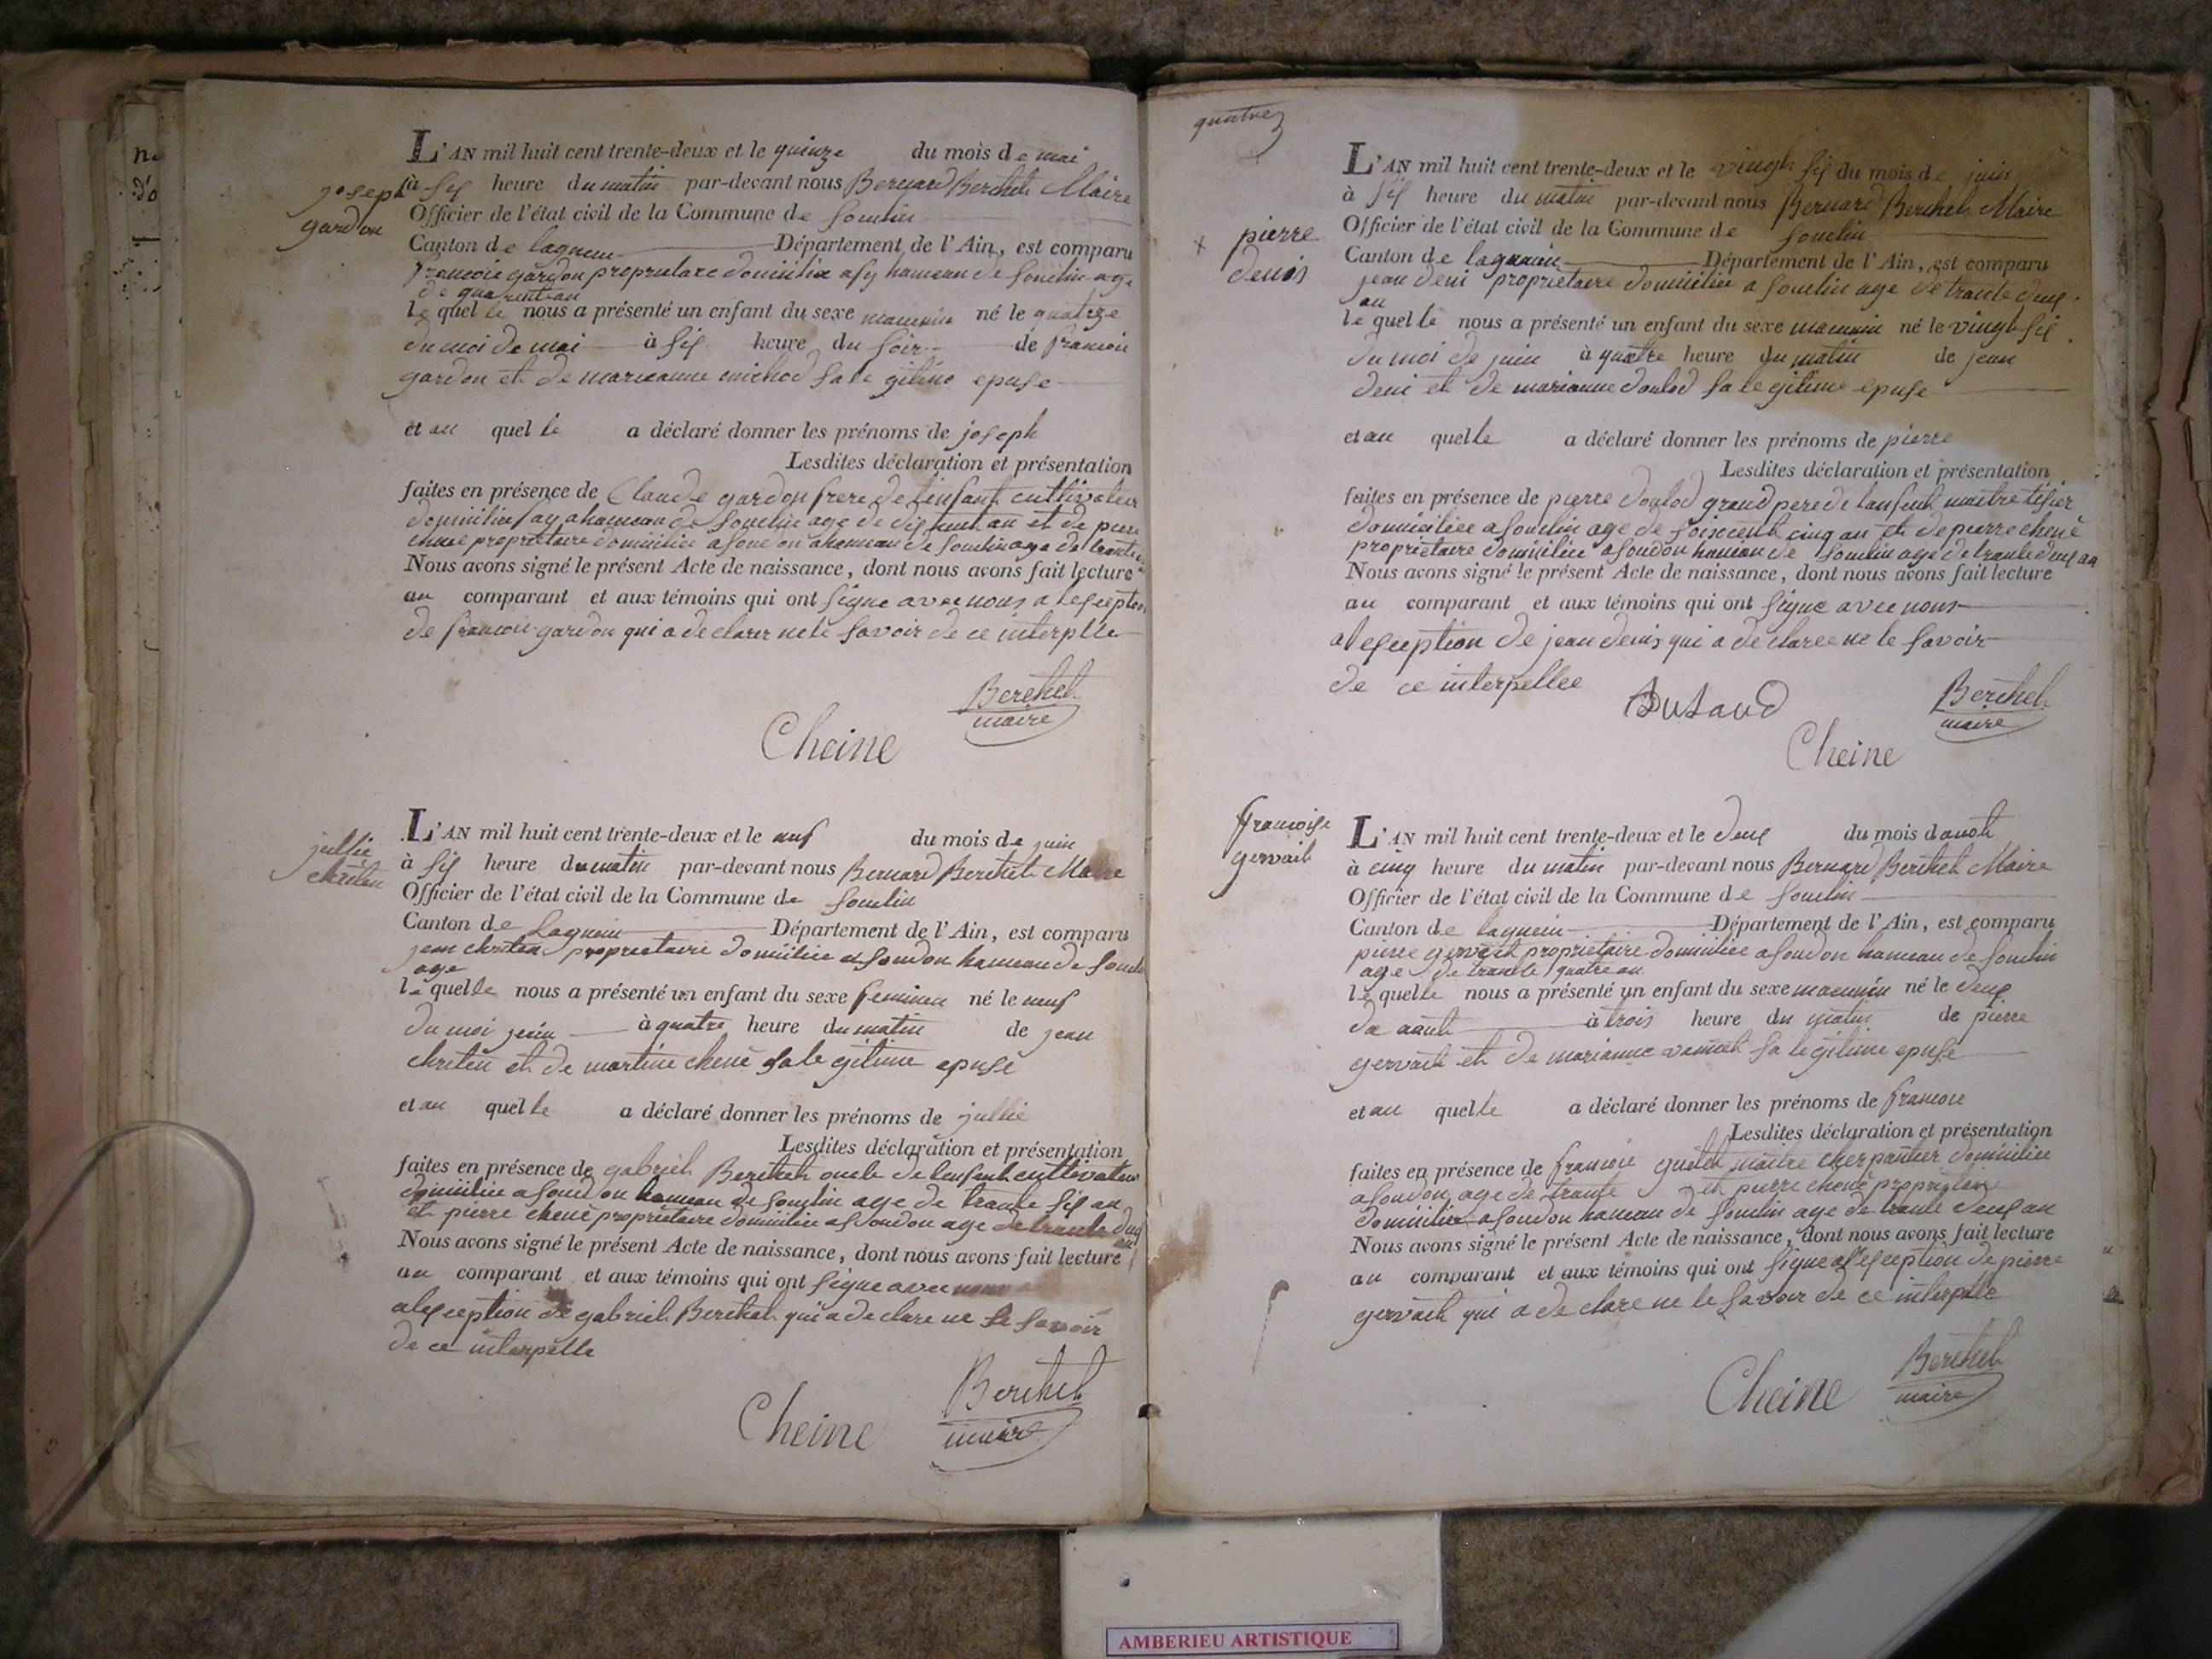 joseph
gardon
L'AN mil huit cent trente-deux et le quinze du mois de mai
à six heure du matin par-devant nous Bernard Berthet Maire
Officier de l'état civil de la Commune de Souclin
Canton de lagneu Département de l'Ain, est comparu
francoie gardon proprietare domicilia a sy hameau de souclin age
de quarent an
lequel le nous a présenté un enfant du sexe masculin né le quatorze
du moi de mai à six heure du soir de francoie
gardon et de marieanne michod sa le gitime epuse
et au quel le a déclaré donner les prénoms de joseph
Lesdites déclaration et présentation
faites en présence de Claude gardon frere de l'enfant cultivateur
domicilie a sy hameau de souclin age de dix huit an et de pierre
chene proprietaire domicilie a soudon ahameau de souclin age de trante
Nous avons signé le présent Acte de naissance, dont nous avons fait lecture
au comparant et aux témoins qui ont signe avec nous a lexception
de francoie gardon qui a declarer ne le savoir de ce interpelle
Berthet
maire
Cheine
jullie
chriten
L'AN mil huit cent trente-deux et le neuf du mois de juin
à six heure du matin par-devant nous Bernard Berthet Maire
Officier de l'état civil de la Commune de Souclin
Canton de Lagneu Département de l'Ain, est comparu
jean chriten proprietaire domicilie a soudon hameau de souclin
age
lequelle nous a présenté un enfant du sexe feminin né le neuf
du moi juin à quatre heure du matin de jean
chriten et de martine chene sa le gitime epuse
et au quel le a déclaré donner les prénoms de jullie
Lesdites déclaration et présentation
faites en présence de gabriel Berthet oncle de lenfent cultivateur
domicilie a soudon hameau de souclin age de trante six an
et pierre chene proprietaire domicilie a soudon age de trante deux
an
Nous avons signé le présent Acte de naissance, dont nous avons fait lecture
au comparant et aux témoins qui ont signe avec nous
alexception de gabriel Berthet qui a declare ne le savoir
de ce interpelle
Berthet
maire
Cheine
quatre
pierre
denis
L'AN mil huit cent trente-deux et le vingt six du mois de juin
à six heure du matin par-devant nous Bernard Berthet Maire
Officier de l'état civil de la Commune de Souclin
Canton de lagnuin Département de l'Ain, est comparu
jean deni proprietaire domicilie a souclin age de trante deux
an
lequel le nous a présenté un enfant du sexe masculin né le vingt six
du moi de juin à quatre heure du matin de jean
deni et de marianne doulod sa le gitime epuse
et au quelle a déclaré donner les prénoms de pierre
Lesdites déclaration et présentation
faites en présence de pierre doulod grand pere de lanfent maitre tisier
domiciliee a souclin age de soiscente cinq an et de pierre chenè
proprietaire domicilie a soudon hameau de souclin age de trante deux an
Nous avons signé le présent Acte de naissance, dont nous avons fait lecture
au comparant et aux témoins qui ont signe avec nous
alexception de jean denis qui a declaree ne le savoir
de ce interpellee
Berthet
maire
Cheine
francoise
gervait
L'AN mil huit cent trente-deux et le deux du mois daoust
à cinq heure du matin par-devant nous Bernard Berthet Maire
Officier de l'état civil de la Commune de Souclin
Canton de lagnein Département de l'Ain, est comparu
pierre gervait proprietaire domicilie a soudon hameau de souclin
age de trante quatre an
lequelle nous a présenté un enfant du sexe masculin né le deux
à trois heure du matin de pierre
gervait et de marianne sa le gitime epuse
et au quel le a déclaré donner les prénoms de francoie
Lesdites déclaration et présentation
faites en présence de francoie maitre cherpantier domicilie
a soudon age de trante et pierre chenè proprietaire
domicilie a soudon hameau de souclin age de trante deux an
Nous avons signé le présent Acte de naissance, dont nous avons fait lecture
au comparant et aux témoins qui ont signe al'exception de pierre
gervait qui a declare ne le savoir de ce interpelle
Berthet
maire
Cheine
AMBERIEU ARTISTIQUE